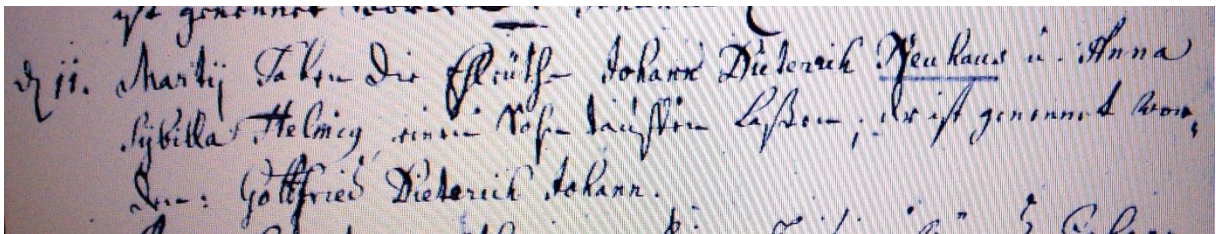 ist genennet worden:
d. 11. Martij haben die Ehleüthe Johann Dieterich Neuhaus u. Anna
Sybilla Helmig einen Sohn tauffen laßen, der ist genennet wor,
den: Gottfried Dieterich Johann.